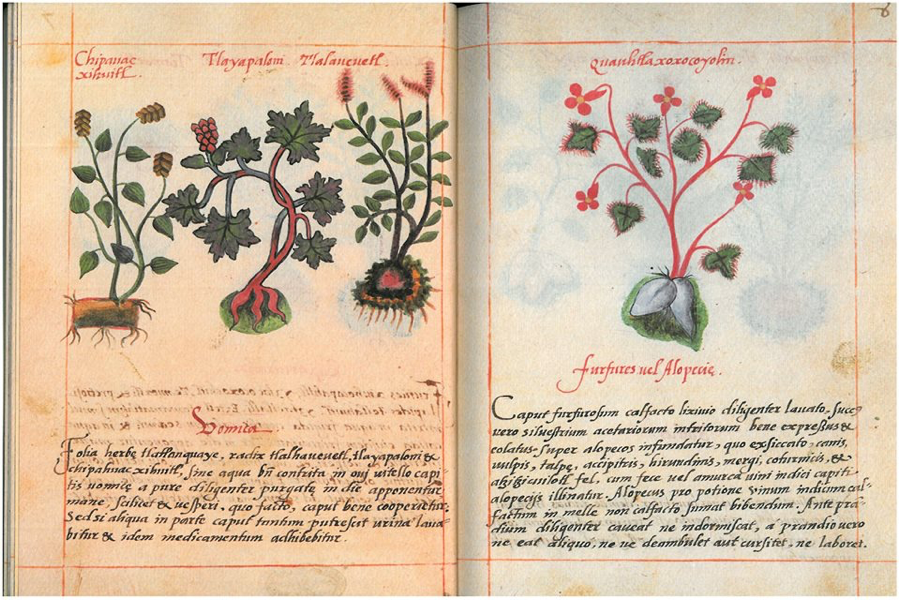 Chipauac Tlayapaloni Tlalaueuetl.
xihuitl.
Vomica
Folia herbe tlatlanquaye, radix tlalhaueuetl, tlayapaloni &
chipahuac xihuitl, sine aqua bñ contrita in oui vitello capi
tis vomice a pure diligenter purgate in die apponentur
mane, scilicet & vesperi, quo facto, caput bene cooperietur.
Sed si aliqua in parte caput tantum putrescit urina laua-
bitur & idem medicamentum adhibebitur.
8
quauhtla xoxocoyolin.
furfures vel Alopecie.
Caput furfurosum calfacto lixivio diligenter lavato. Succꝰ
vero silvestrium acetariorum intritorum bene expressus &
colatus super alopecos infundatur, quo exsiccato, canis,
vulpis, talpe, accipitris, hirundinis, mergi, coturnicis, &
atzitzicuilotl fel, cum fece vel amurca vini indici capiti
alopecijs illinatur. Alopecus pro potione vinum indicum cal-
factum in melle non calfacto sumat bibendum. Ante pran
dium diligenter caveat ne indormiscat, a prandio vero
ne eat aliquo, ne ve deambulet aut cursitet, ne laboret.